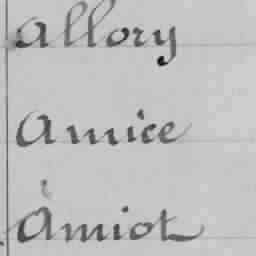 Allory
Amice
Amiot